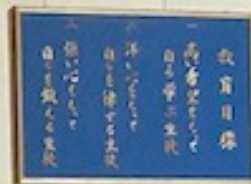 教育目標
一 高い志をもって
自ら学ぶ生徒
一 広い心をもって
自らを律する生徒
一 強い心をもって
自らを鍛える生徒